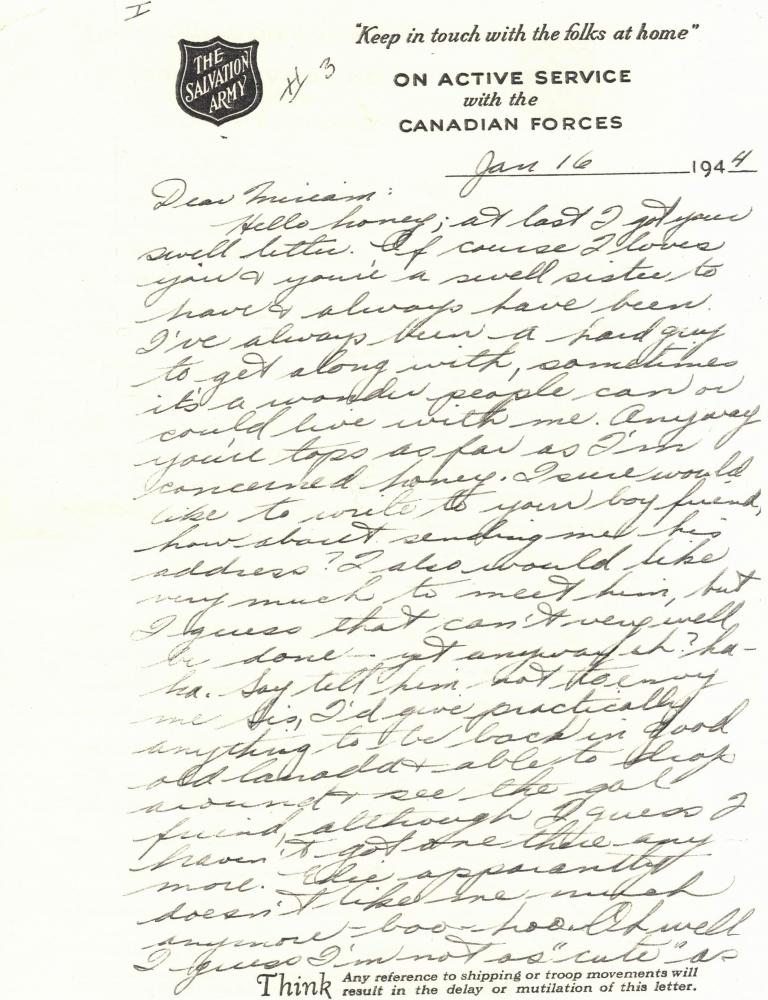 I
"Keep in touch with the folks at home"
THE
SALVATION
ARMY
# 3
ON ACTIVE SERVICE
with the
CANADIAN FORCES
Jan 16 1944
Dear Miriam:
Hello honey; at last I got your
swell letter. Of course I loves
you & you're a swell sister to
have & always have been.
I've always been a hard guy
to get along with, sometimes
it's a wonder people can or
could live with me. Anyway
you're tops as far as I'm
concerned honey. I sure would
like to write to your boy friend,
how about sending me his
address? I also would like
very much to meet him, but
I guess that can't very well
be done - yet anyway eh? ha-
ha. Say tell him not to envy
me Sis, I'd give practically
anything to be back in good
old Canada & able to drop
around & see the gal
friend, although I guess I
haven't got one there any
more. Elsie apparantly
doesn't like me much
anymore - boo - hoo. Oh well
I guess I'm not as "cute" as
Think Any reference to shipping or troop movements will
result in the delay or mutilation of this letter.